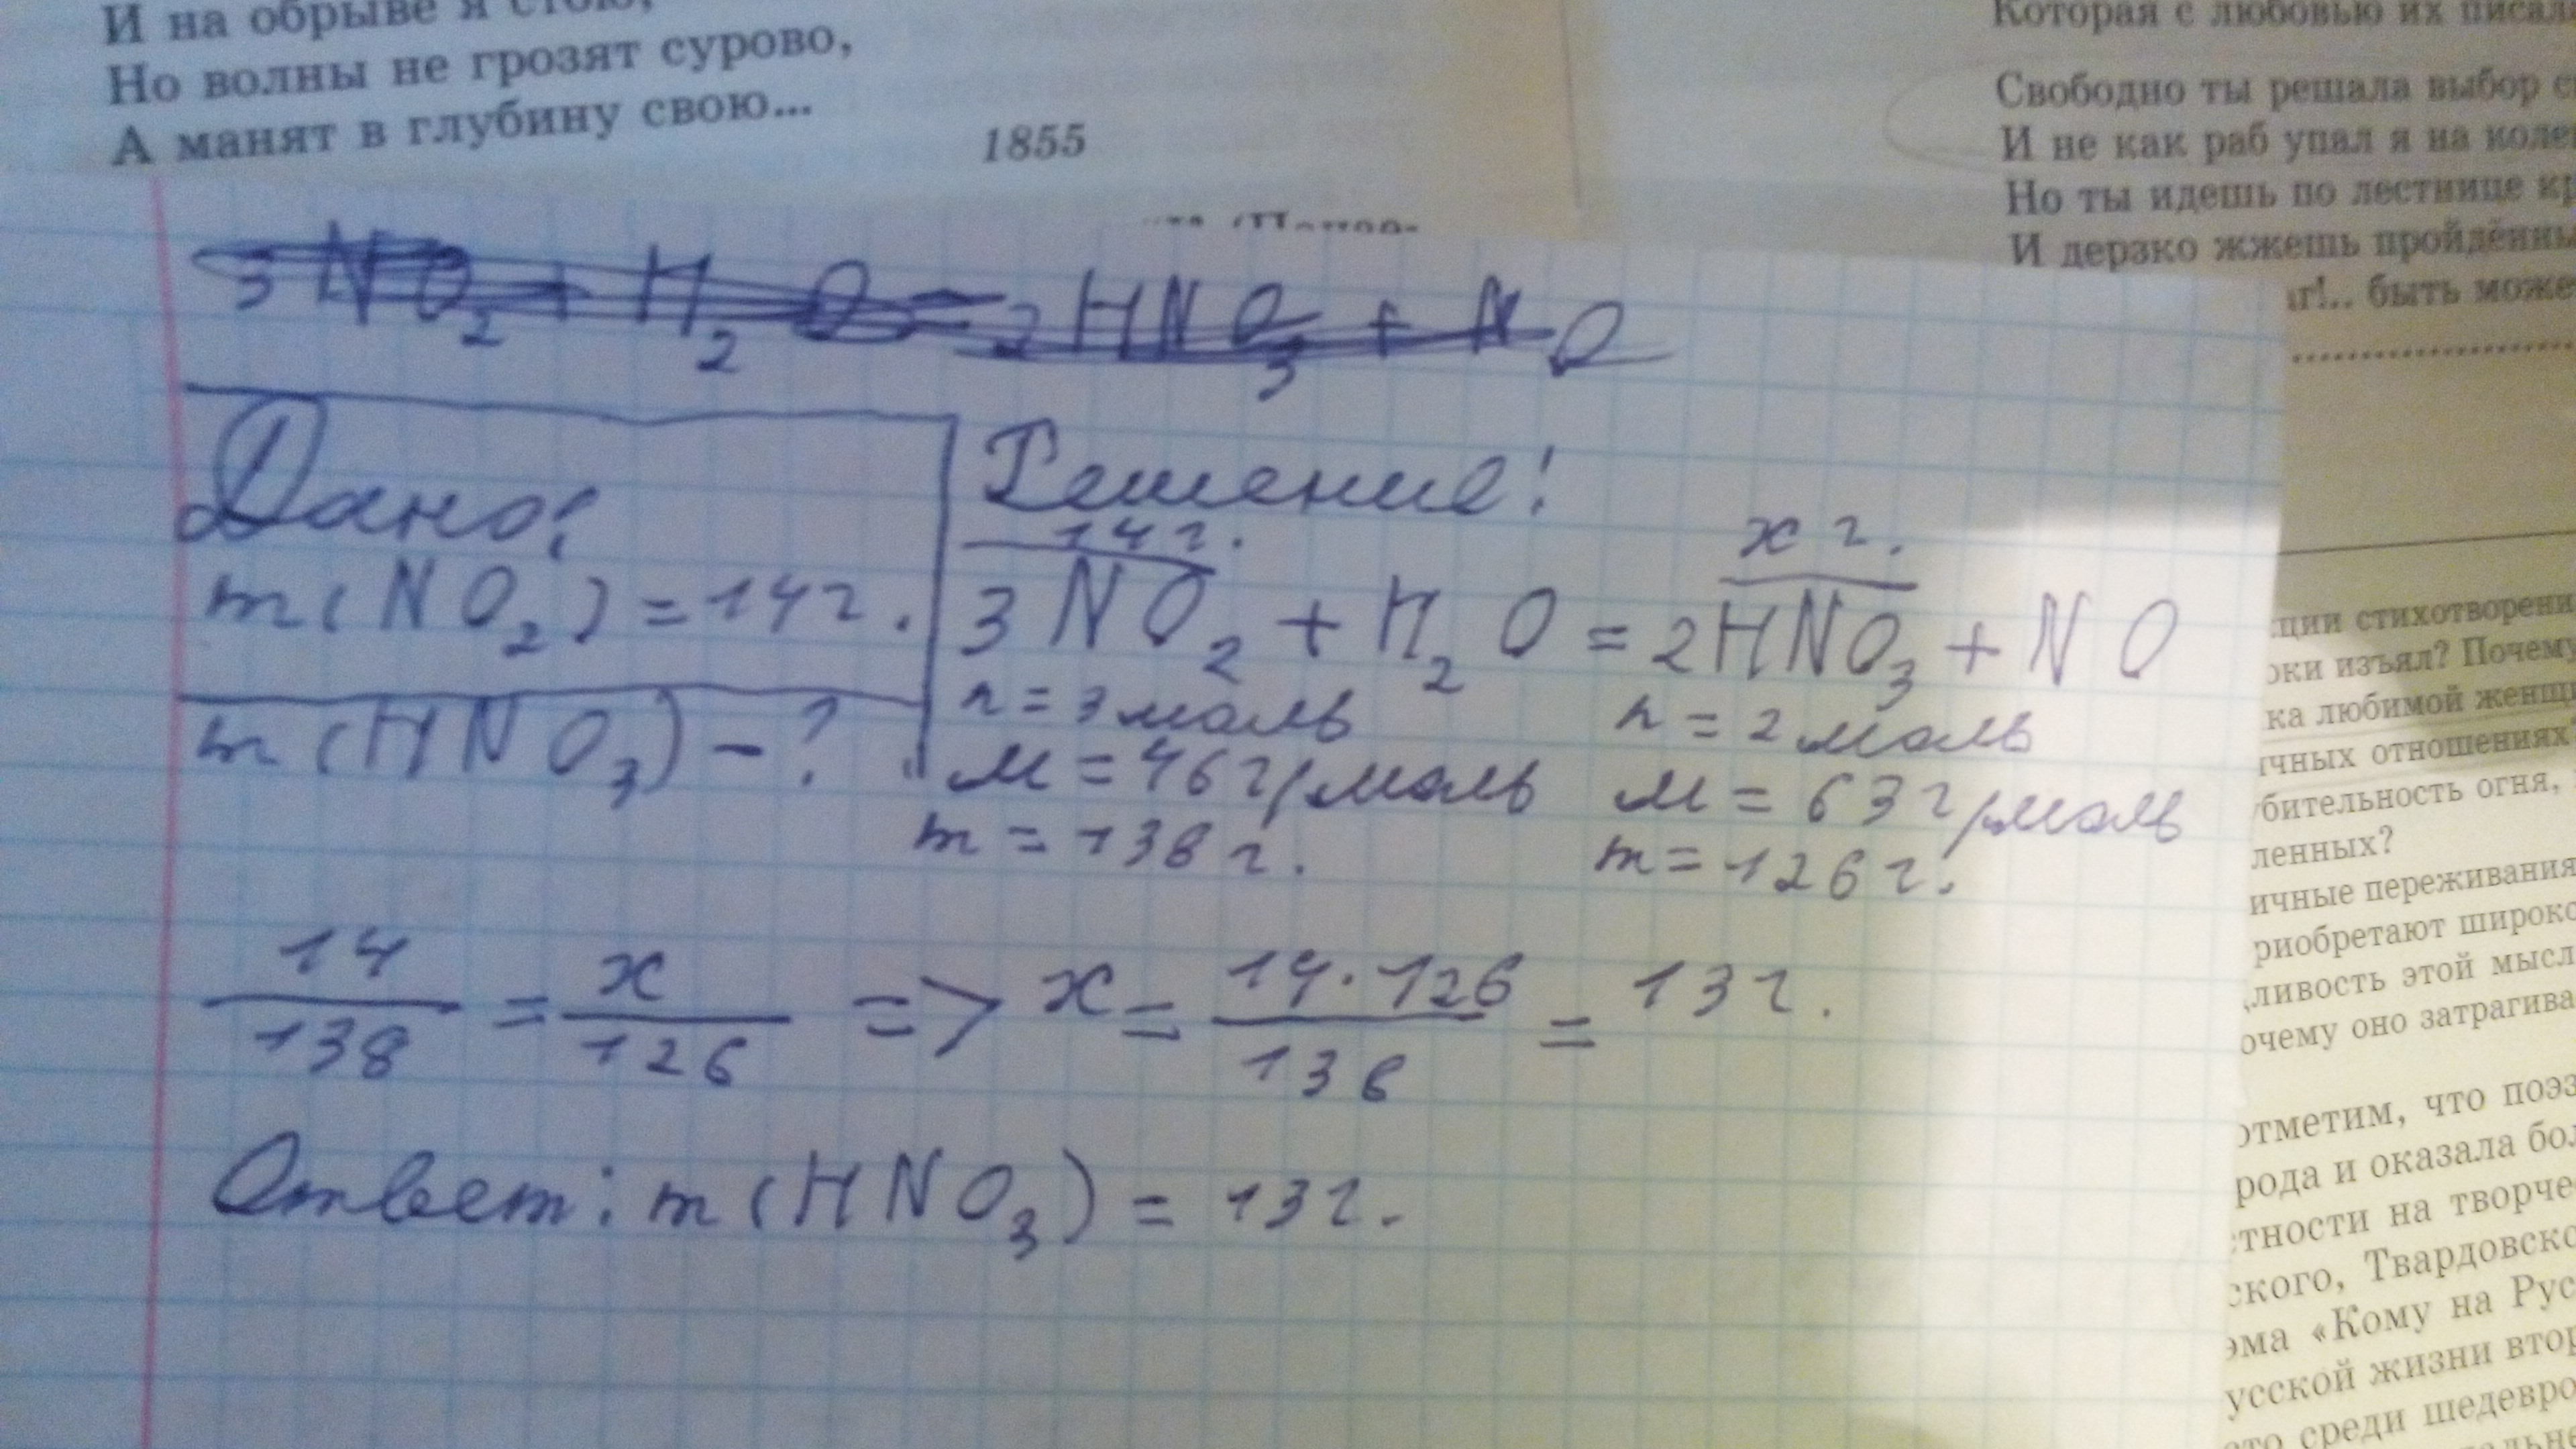 И на обрыве я стою,
Но волны не грозят сурово,
А манят в глубину свою...
1855
Которая с любовью их писала
Свободно ты решала выбор
И не как раб упал я на
Но ты идешь по лестнице
И дерзко жжешь
быть може
3NO2 + H2O = 2HNO3 + NO
Дано:
m(NO2) = 14г.
m(HNO3) - ?
Решение!
14г. x г.
3NO2 + H2O = 2HNO3 + NO
n = 3 моль n = 2 моль
M = 46г/моль M = 63г/моль
m = 138г. m = 126г.
14/138 = x/126 => x = 14·126/138 = 13г.
Ответ: m(HNO3) = 13г.
ции стихотворени
оки изъял? Почему
ка любимой женщи
ичных отношениях
убительность огня,
ленных?
ичные переживания
риобретают широко
дливость этой мысл
очему оно затрагива
отметим, что поэз
рода и оказала бол
стности на творче
ского, Твардовско
эма «Кому на Рус
усской жизни втор
это среди шедевро